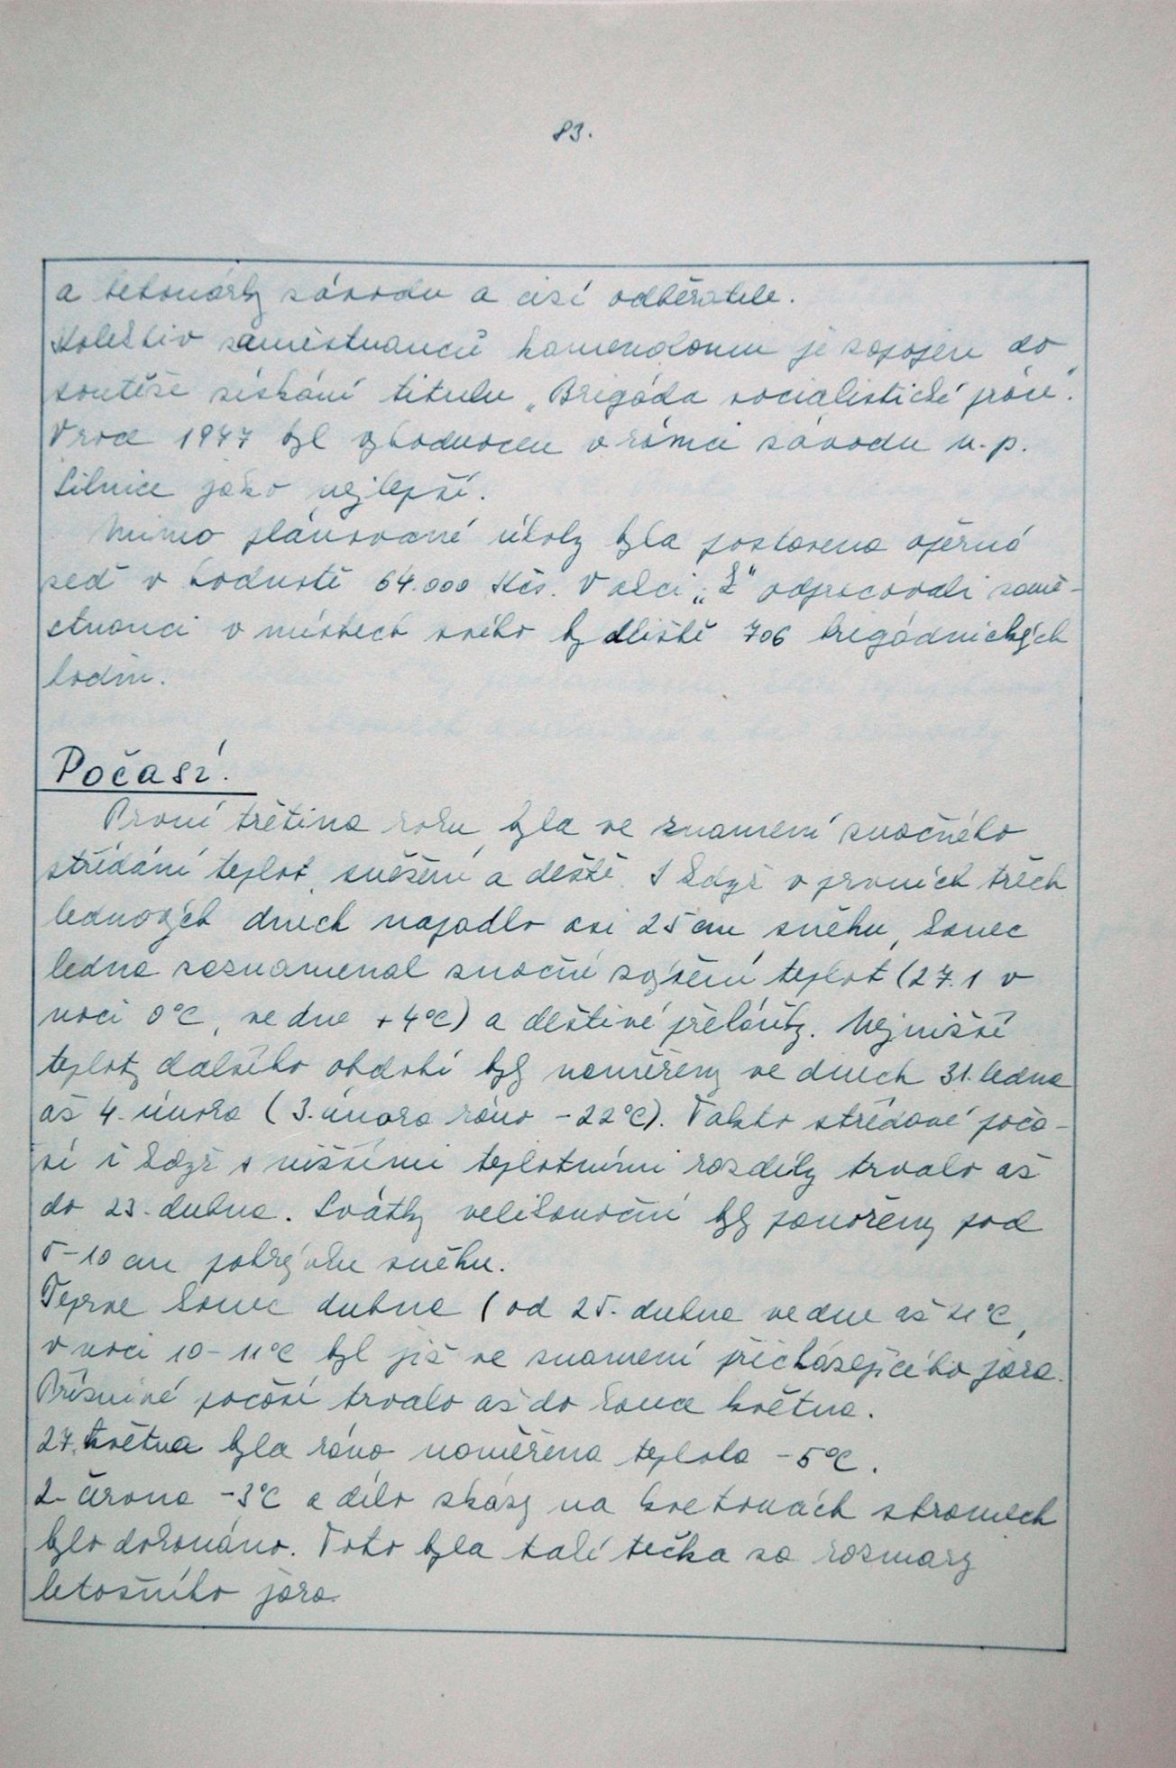 83.
a betonárky závodu a cizí odběratele.
Kolektiv zaměstnanců kamenolomu je zapojen do
soutěže získání titulu „Brigáda socialistické práce".
V roce 1977 byl vyhodnocen v rámci závodu n. p.
Silnice jako nejlepší.
Mimo plánované úkoly byla postavena opěrná
zeď v hodnotě 64.000 Kčs. V akci „Z" odpracovali zamě-
stnanci v místech svého bydliště 706 brigádnických
hodin.
Počasí.
První třetina roku byla ve znamení značného
střídání teplot, sněžení a deště. I když v prvních třech
lednových dnech napadlo asi 25 cm sněhu, konec
ledna zaznamenal značné zvýšení teplot (27.1 v
noci 0°C, ve dne +4°C) a deštivé přeháňky. Nejnižší
teploty dalšího období byly naměřeny ve dnech 31. ledna
až 4. února (3. února ráno -22°C). Takto střídavé poča-
sí i když s nižšími teplotními rozdíly trvalo až
do 23. dubna. Svátky velikonoční byly ponořeny pod
5-10 cm pokrývku sněhu.
Teprve konec dubna (od 25. dubna ve dne až 21°C,
v noci 10-11°C byl již ve znamení přicházejícího jara.
Příznivé počasí trvalo až do konce května.
27. května byla ráno naměřena teplota -5°C.
2. června -3°C a dílo zkázy na kvetoucích stromech
bylo dokonáno. Toto byla také tečka za rozmary
letošního jara.